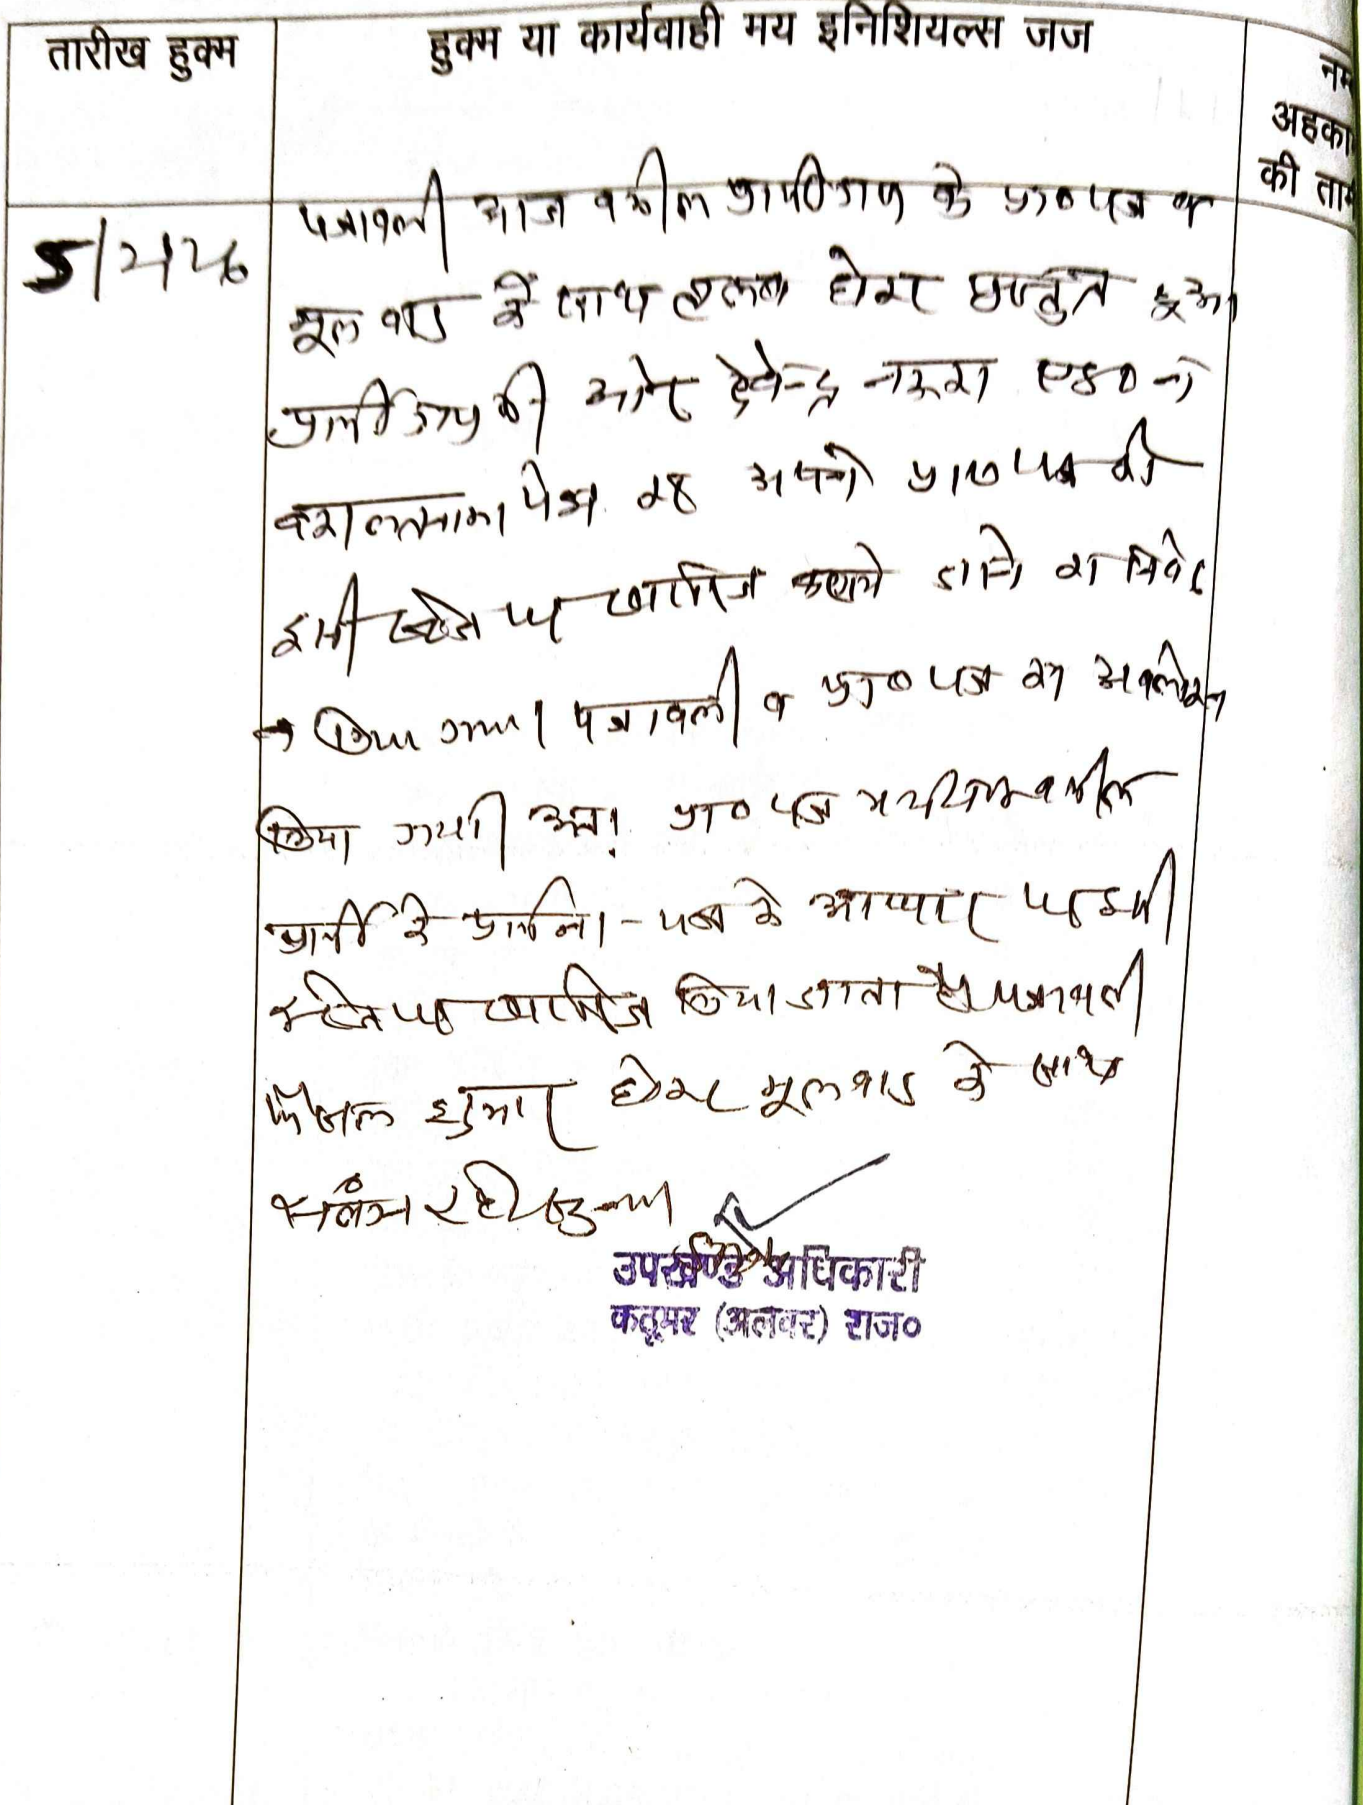 तारीख हुक्म
हुक्म या कार्यवाही मय इनिशियल्स जज
अहका
की ताम
पत्रावली आज वकील प्रार्थीगण के प्रा० पत्र व
मूल वाद के साथ तलब होकर प्रस्तुत हुआ
प्रार्थीगण की ओर देवेन्द्र एड० ने
वकालतनामा पेश कर अपने प्रा० पत्र को
इसी स्टेज पर खारिज कराये जाने का निवेद
न किया गया। पत्रावली व प्रा० पत्र का अवलोकन
किया गया। अतः प्रा० पत्र वकील
प्रार्थी के प्रार्थना-पत्र के आधार पर इसी
स्टेज पर खारिज किया जाता है। पत्रावली
फैसल शुमार होकर मूल वाद के साथ
संलग्न रहे।
उपखण्ड अधिकारी
कठूमर (अलवर) राज०